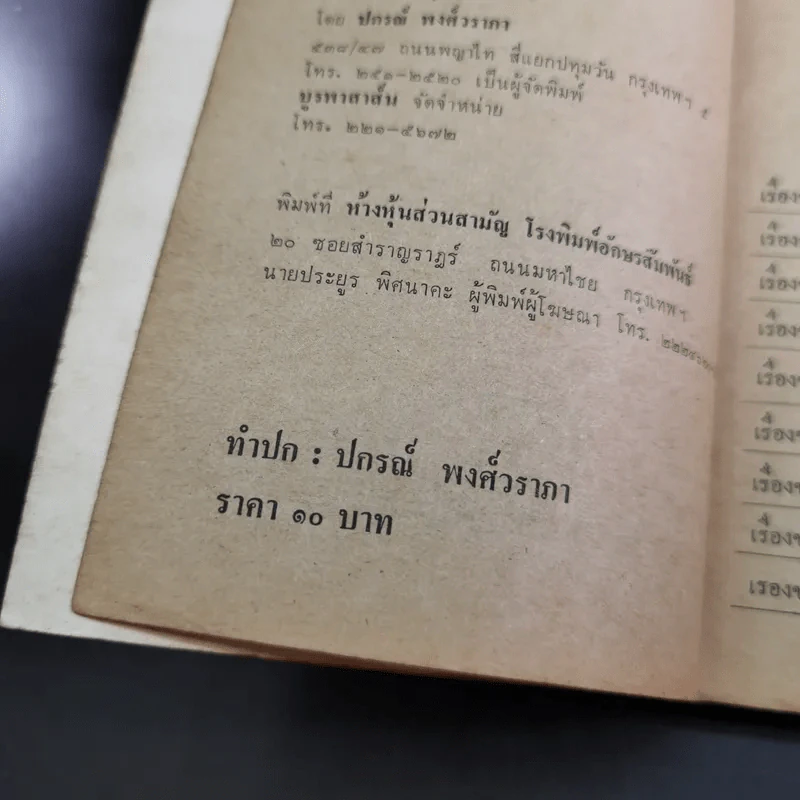 โดย ปกรณ์ พงศ์วราภา
๕๓๘/๔๗ ถนนพญาไท สี่แยกปทุมวัน กรุงเทพฯ ๕
โทร. ๒๕๑-๒๕๒๐ เป็นผู้จัดพิมพ์
บูรพาสาส์น จัดจำหน่าย
โทร. ๒๒๑-๕๖๗๒
พิมพ์ที่ ห้างหุ้นส่วนสามัญ โรงพิมพ์อักษรสัมพันธ์
๒๐ ซอยสำราญราษฎร์ ถนนมหาไชย กรุงเทพฯ
นายประยูร พิศนาคะ ผู้พิมพ์ผู้โฆษณา โทร.
ทำปก : ปกรณ์ พงศ์วราภา
ราคา ๑๐ บาท